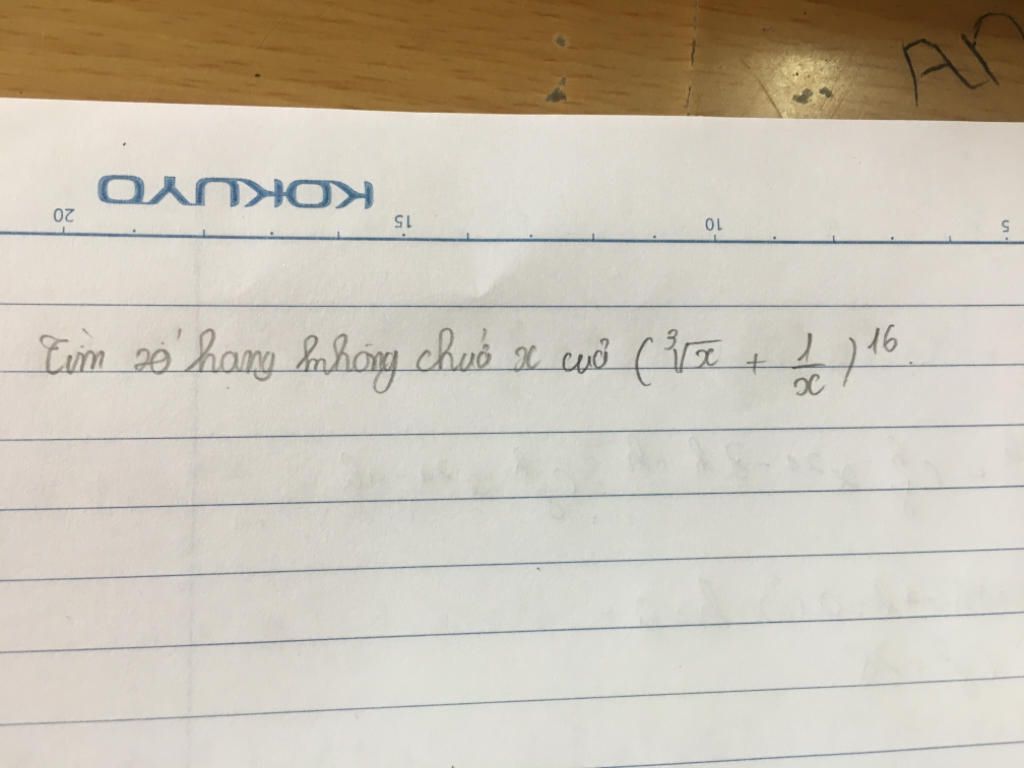 AN
KOKUYO
20 15 10 5
Tìm số hạng không chứa x của (∛x + 1/x)^16.